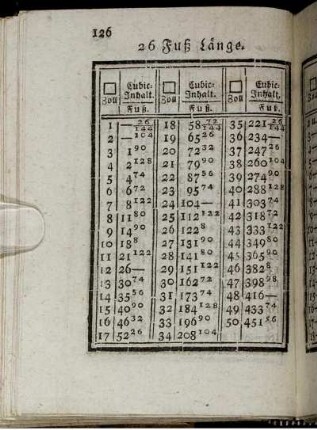 126
26 Fuß Länge.
Cubic- Cubic- Cubic-
Zoll Inhalt. Zoll Inhalt. Zoll Inhalt.
Fuß. Fuß. Fuß.
1 — 26/144 18 58 72/144 35 221 26/144
2 — 104 19 65 26 36 234 —
3 1 90 20 72 32 37 247 26
4 2 128 21 79 90 38 260 104
5 4 74 22 87 56 39 274 90
6 6 72 23 95 74 40 288 128
7 8 122 24 104 — 41 303 74
8 11 80 25 112 122 42 318 72
9 14 90 26 122 8 43 333 122
10 18 8 27 131 90 44 349 80
11 21 122 28 141 80 45 365 90
12 26 — 29 151 122 46 382 8
13 30 74 30 162 72 47 398 98
14 35 56 31 173 74 48 416 —
15 40 90 32 184 128 49 433 74
16 46 32 33 196 90 50 451 56
17 52 26 34 208 104